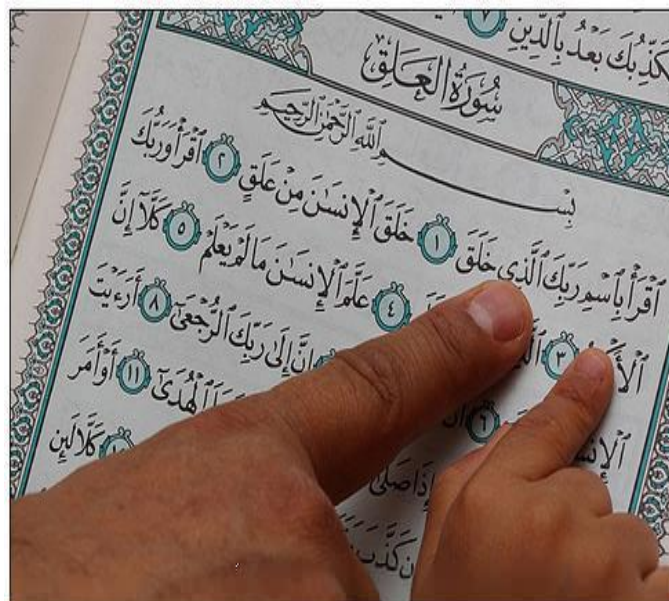 كَذِّبُكَ بَعْدُ بِالدِّينِ ٧
سُورَةُ الْعَلَقِ
بِسْمِ اللَّهِ الرَّحْمَٰنِ الرَّحِيمِ
ٱقْرَأْ بِٱسْمِ رَبِّكَ ٱلَّذِى خَلَقَ ١ خَلَقَ ٱلْإِنسَٰنَ مِنْ عَلَقٍ ٢ ٱقْرَأْ وَرَبُّكَ
٣ ٤ عَلَّمَ ٱلْإِنسَٰنَ مَا لَمْ يَعْلَمْ ٥ كَلَّآ إِنَّ
٦ إِنَّ إِلَىٰ رَبِّكَ ٱلرُّجْعَىٰٓ ٨ أَرَءَيْتَ
إِذَا صَلَّىٰٓ ٱلْهُدَىٰٓ ١١ أَوْ أَمَرَ
كَذَّبَ كَلَّا لَئِن